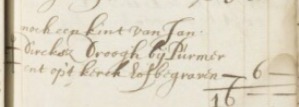 noch een kint van Jan
Dircksz Droogh bij Purmer
ent opt kerck hof begraven — 6 —
16